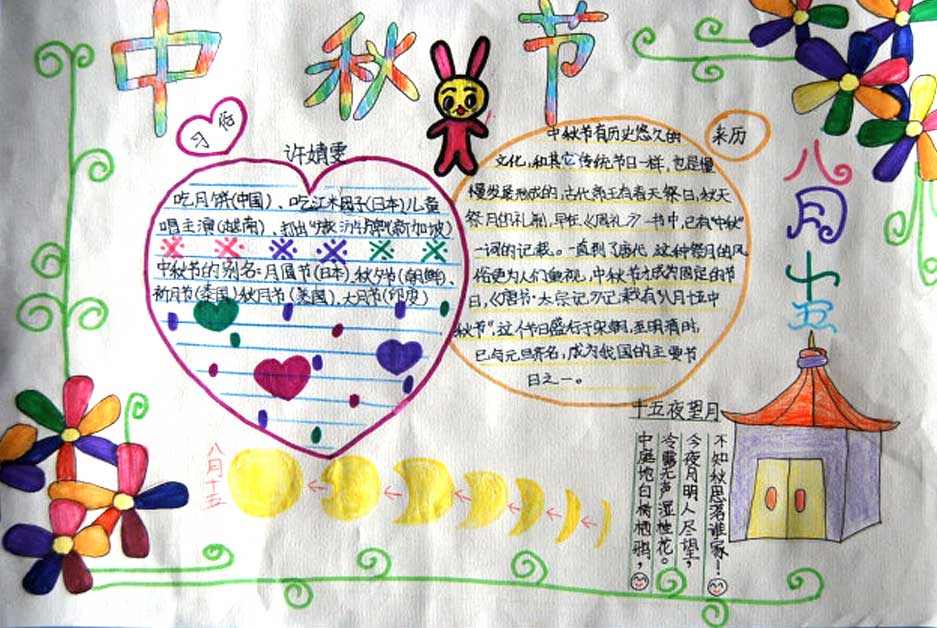 中秋节
习俗
许婧雯
吃月饼(中国)、吃江米团子(日本)儿童
唱主演(越南)、
中秋节的别名:月圆节(日本)、秋夕节(朝鲜)、
祈月节(泰国)秋月节(美国)、大月节(印度)
来历
中秋节有历史悠久的
文化,和其它传统节日一样,也是慢
慢发展形成的,古代帝王有春天祭日,秋天
祭月的礼制,早在《周礼》一书中,已有"中秋"
一词的记载。一直到了唐代,这种祭月的风
俗更为人们重视,中秋节才成为固定的节
日,《唐书·太宗记》记载有"八月十五中
秋节",这个节日盛行于宋朝,至明清时,
已与元旦齐名,成为我国的主要节
日之一。
八月十五
八月十五
十五夜望月
中庭地白树栖鸦,
冷露无声湿桂花。
今夜月明人尽望,
不知秋思落谁家!